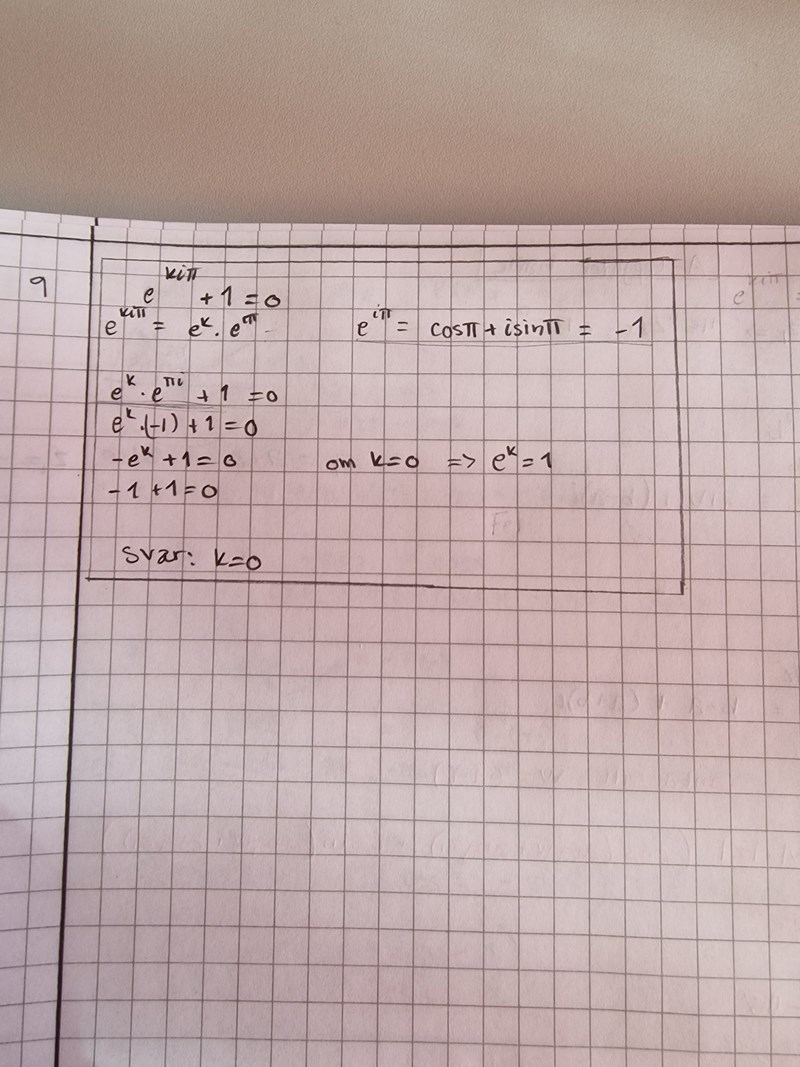 9
e^{kiπ} + 1 = 0
e^{kiπ} = e^k · e^{iπ} e^{iπ} = cosπ + isinπ = -1
e^k · e^{πi} + 1 = 0
e^k · (-1) + 1 = 0
-e^k + 1 = 0 om k=0 => e^k = 1
-1 + 1 = 0
Svar: k=0